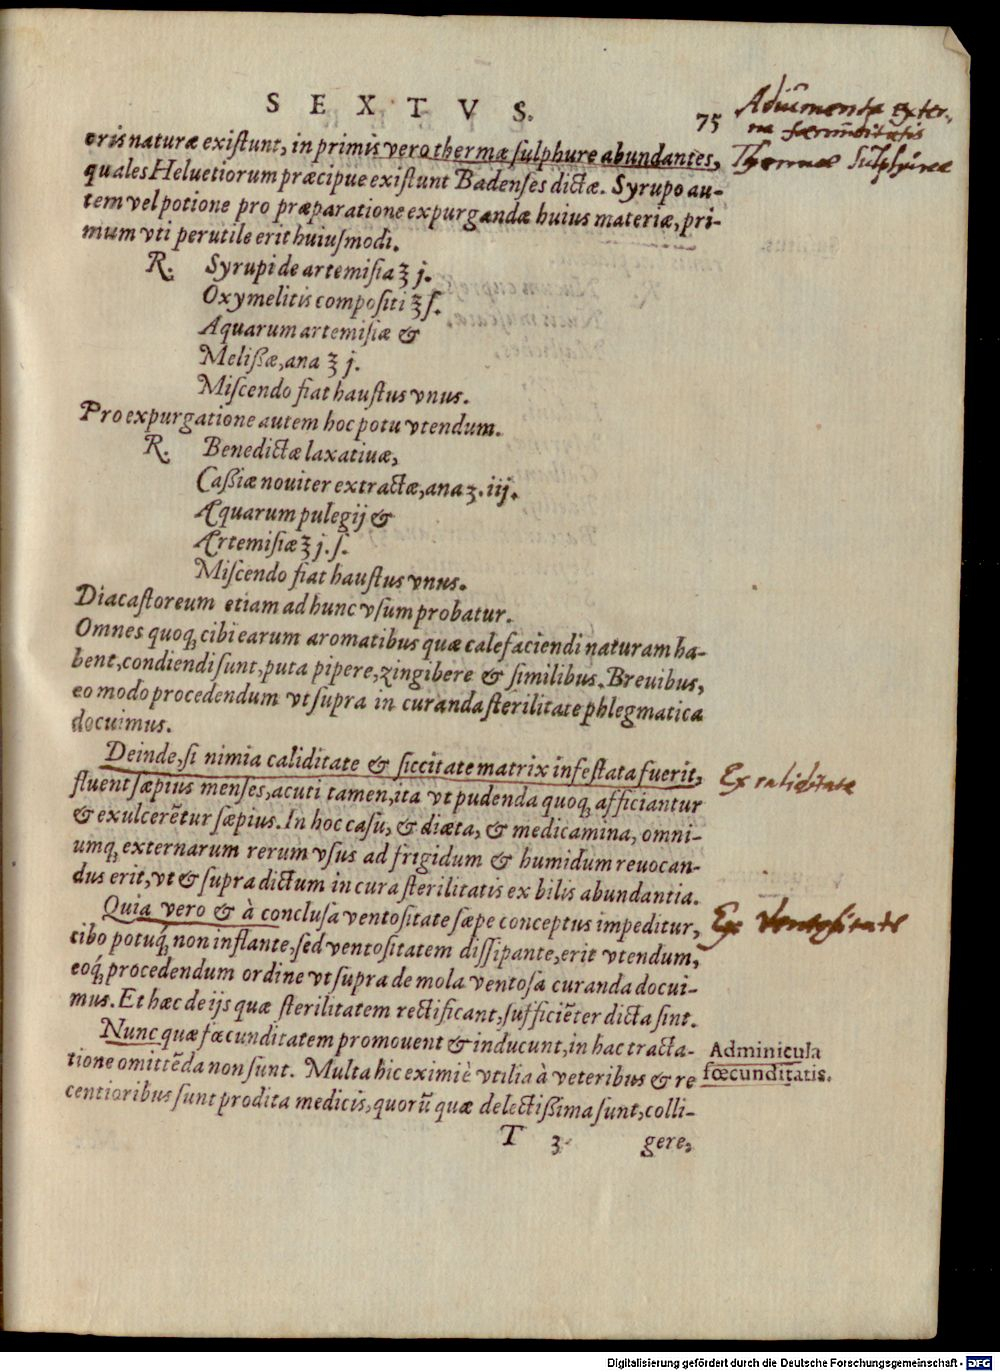 SEXTVS. 75
eris naturæ existunt, in primis vero thermæ sulphure abundantes,
quales Heluetiorum præcipue existunt Badenses dictæ. Syrupo au-
tem vel potione pro præparatione expurgandæ huius materiæ, pri-
mum vti perutile erit huiusmodi.
R. Syrupi de artemisia ℥ j.
Oxymelitis compositi ℥ ſ.
Aquarum artemisiæ &
Melißæ, ana ℥ j.
Miscendo fiat haustus vnus.
Pro expurgatione autem hoc potu vtendum.
R. Benedictæ laxatiuæ,
Caßiæ nouiter extractæ, ana ʒ. iij.
Aquarum pulegij &
Artemisiæ ℥ j. ſ.
Miscendo fiat haustus vnus.
Diacastoreum etiam ad hunc vsum probatur.
Omnes quoq; cibi earum aromatibus quæ calefaciendi naturam ha-
bent, condiendi sunt, puta pipere, zingibere & similibus. Breuibus,
eo modo procedendum vt supra in curanda sterilitate phlegmatica
docuimus.
Deinde, si nimia caliditate & siccitate matrix infestata fuerit,
fluent sæpius menses, acuti tamen, ita vt pudenda quoq; afficiantur
& exulcerẽtur sæpius. In hoc casu, & diæta, & medicamina, omni-
umq; externarum rerum vsus ad frigidum & humidum reuocan-
dus erit, vt & supra dictum in cura sterilitatis ex bilis abundantia.
Quia vero & à conclusa ventositate sæpe conceptus impeditur,
cibo potuq́; non inflante, sed ventositatem dissipante, erit vtendum,
eoq́; procedendum ordine vt supra de mola ventosa curanda docui-
mus. Et hæc de ijs quæ sterilitatem rectificant, sufficiẽter dicta sint.
Nunc quæ fœcunditatem promouent & inducunt, in hac tracta-
tione omittẽda non sunt. Multa hic eximiè vtilia à veteribus & re
centioribus sunt prodita medicis, quorũ quæ delectißima sunt, colli-
T 3 gere,
Adiumenta exter-
na fœcunditatis
Thermae Sulphureae
Ex caliditate
Ex Ventositate
Adminicula
fœcunditatis.
Digitalisierung gefördert durch die Deutsche Forschungsgemeinschaft - DFG